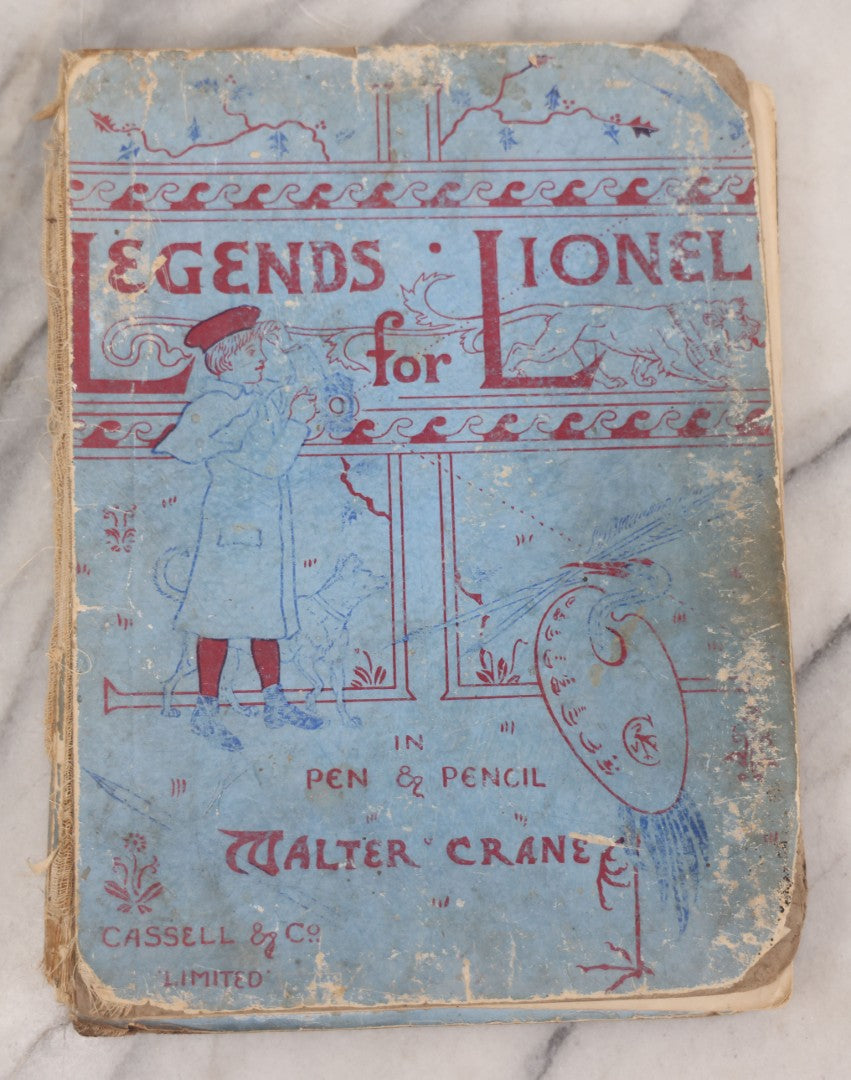 LEGENDS · LIONEL
for
IN
PEN & PENCIL
WALTER CRANE
CASSELL & Co
LIMITED